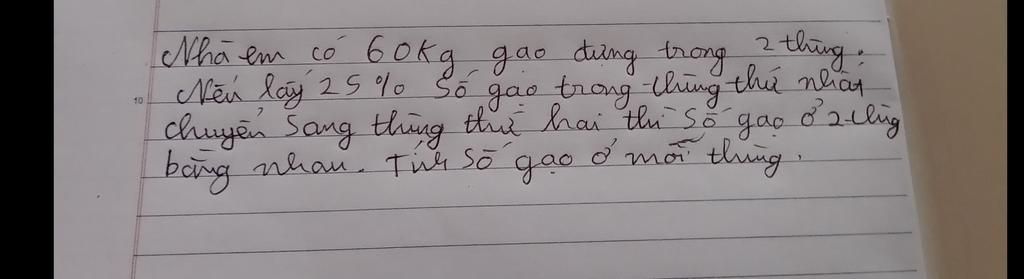 Nhà em có 60kg gạo đựng trong 2 thùng.
Nếu lấy 25% số gạo trong thùng thứ nhất
chuyển sang thùng thứ hai thì số gạo ở 2 thùng
bằng nhau. Tính số gạo ở mỗi thùng.
10